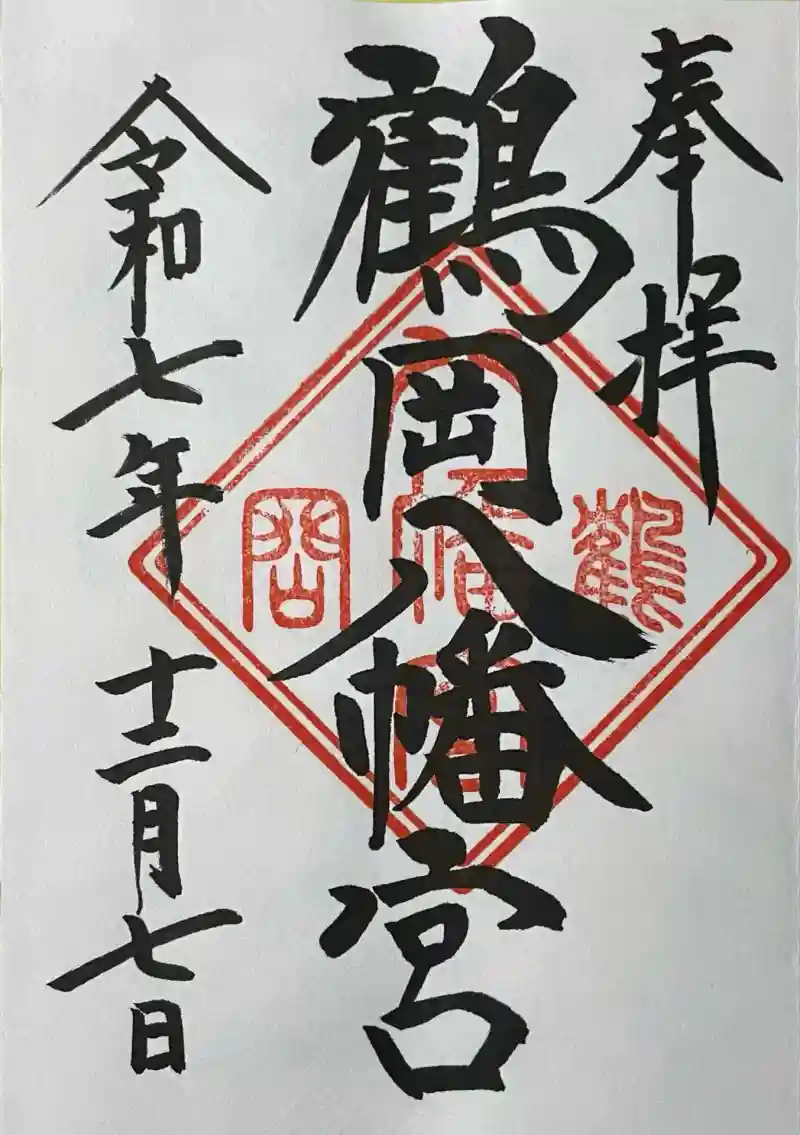 奉拝
鶴岡八幡宮
令和七年十二月七日
鶴
八幡宮
岡